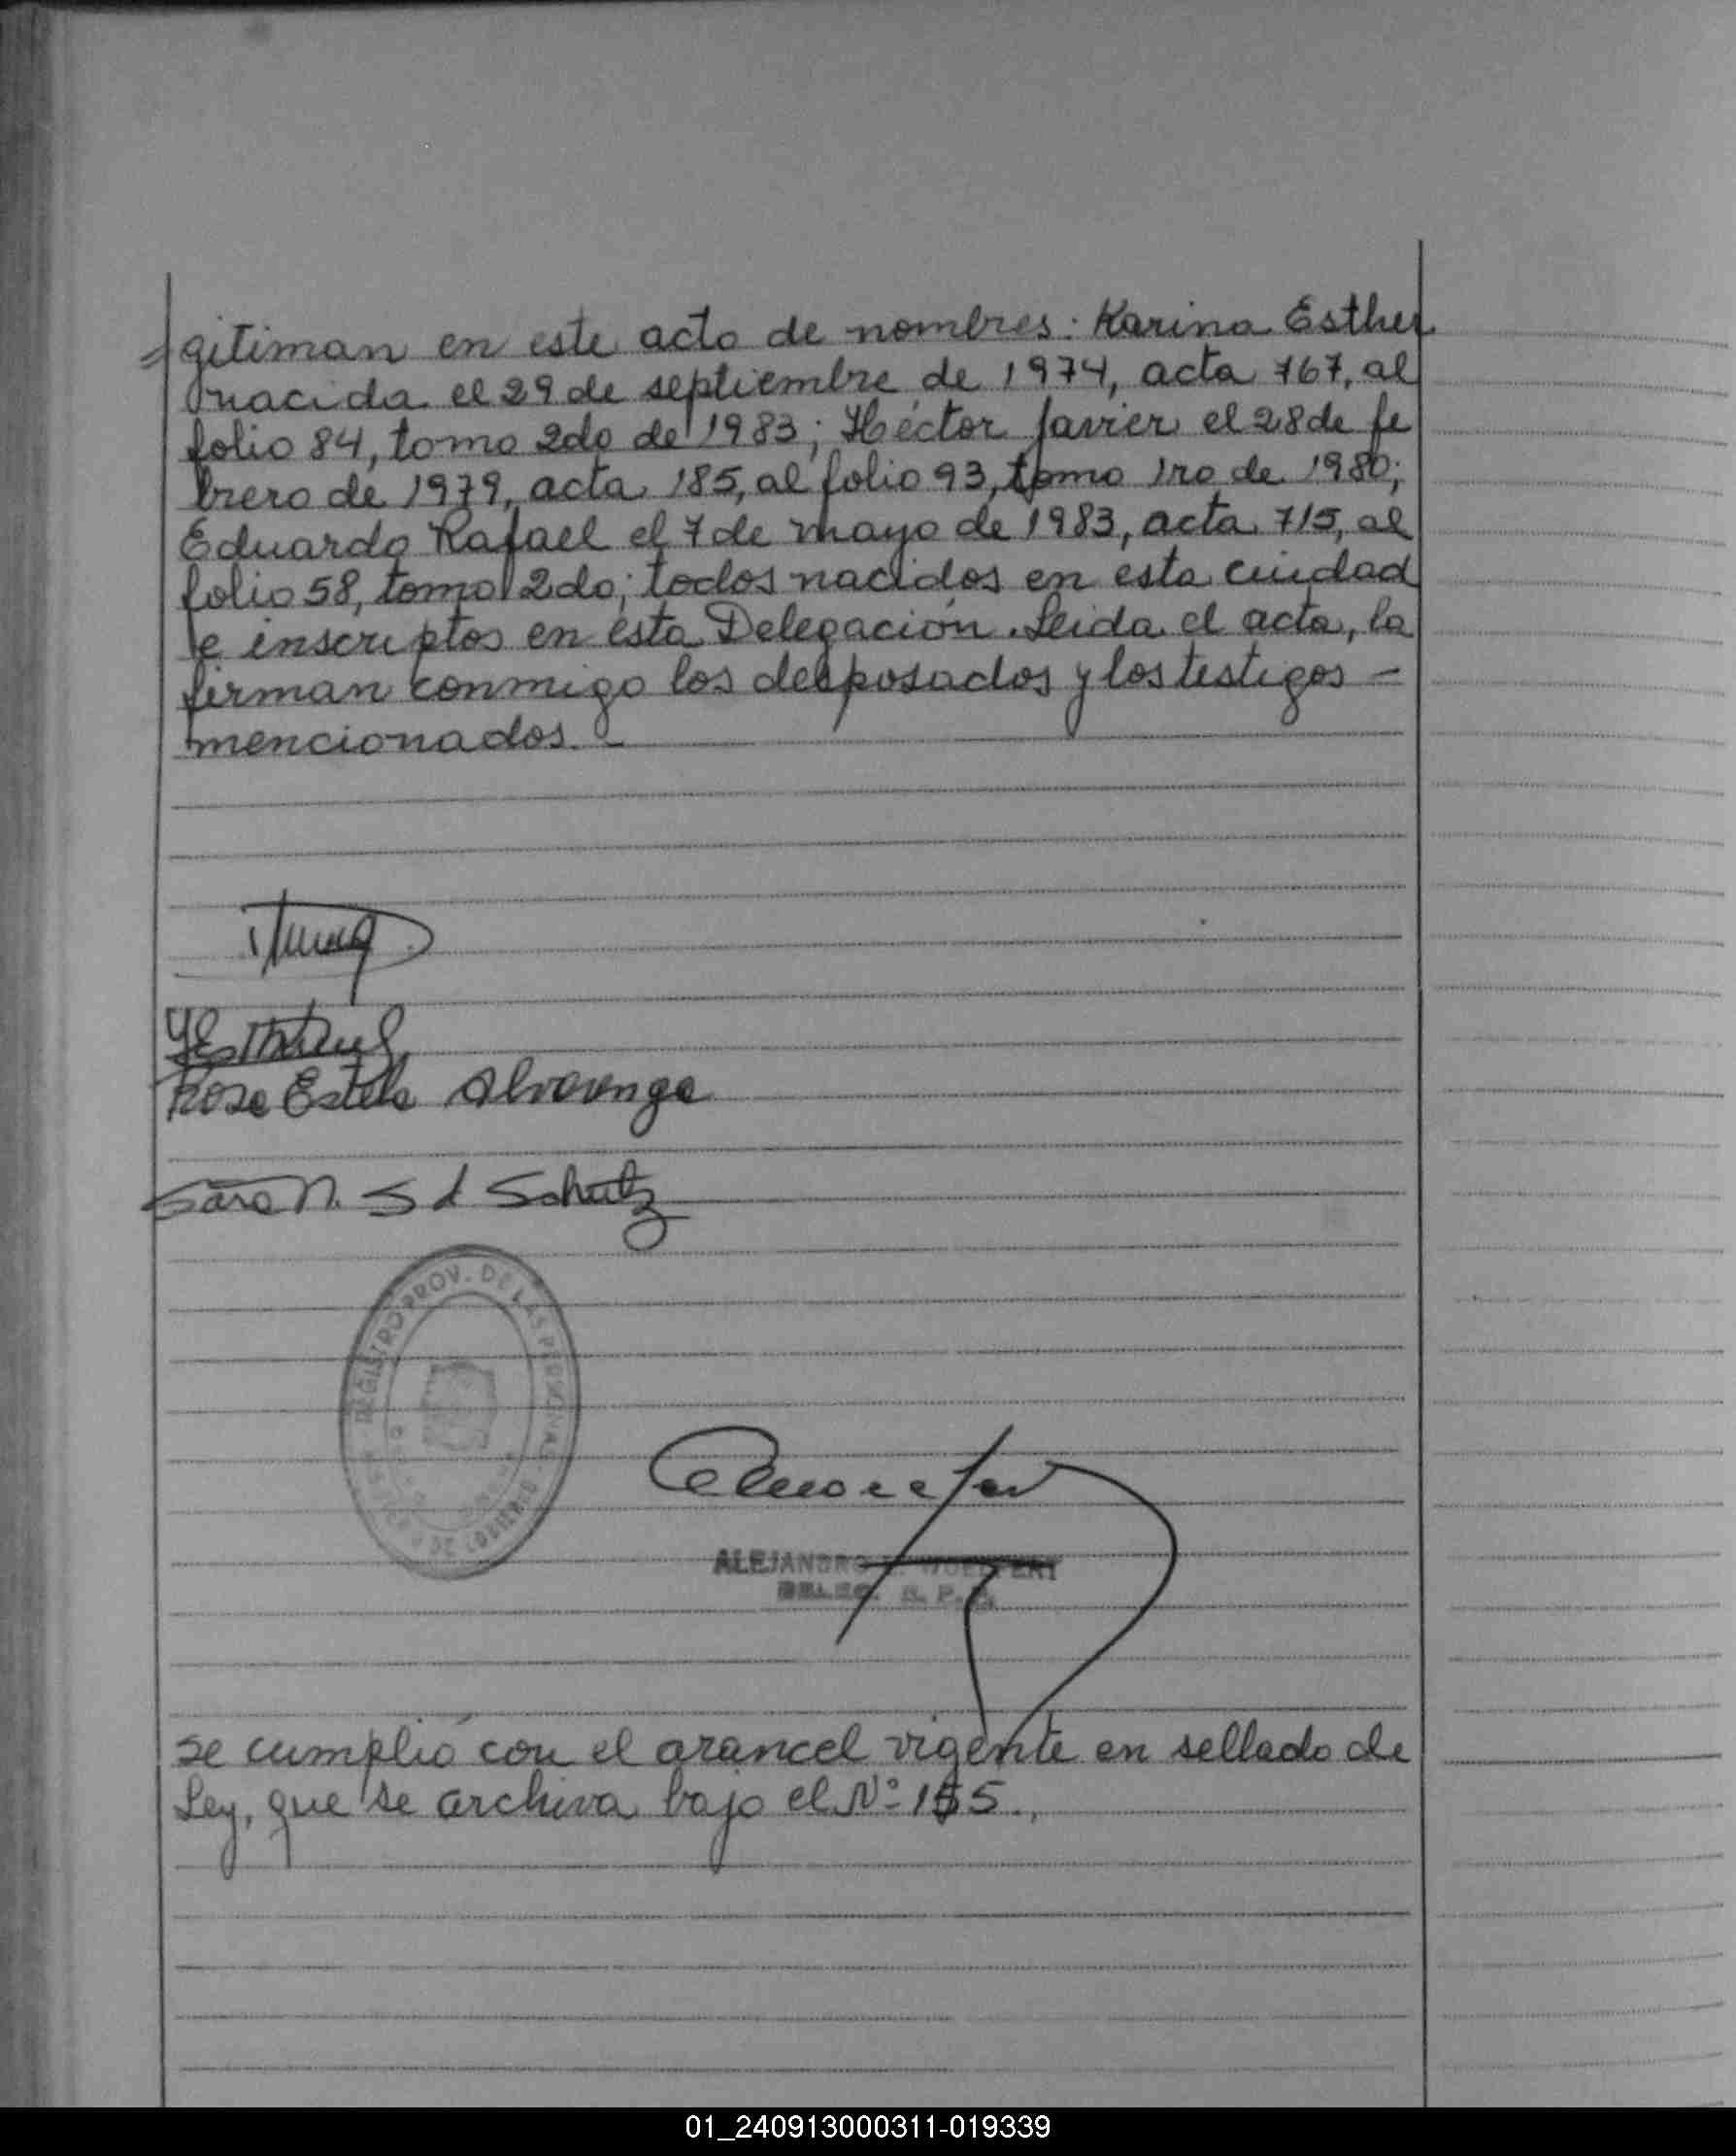 =gitiman en este acto de nombres: Karina Esther
nacida el 29 de septiembre de 1974, acta 767, al
folio 84, tomo 2do de 1983; Héctor Javier el 28 de fe
brero de 1979, acta 185, al folio 93, tomo 1ro de 1980;
Eduardo Rafael el 7 de mayo de 1983, acta 715, al
folio 58, tomo 2do; todos nacidos en esta ciudad
e inscriptos en esta Delegación. Leida el acta, la
firman conmigo los desposados y los testigos -
mencionados. -
Rosa Estela Alvarenga
Sara N. S d Schutz
REGISTRO PROV. DE LAS PERSONAS
ALEJANDRO
DELEG. R. P. P.
se cumplió con el arancel vigente en sellado de
Ley, que se archiva bajo el Nº 155.,
01_240913000311-019339